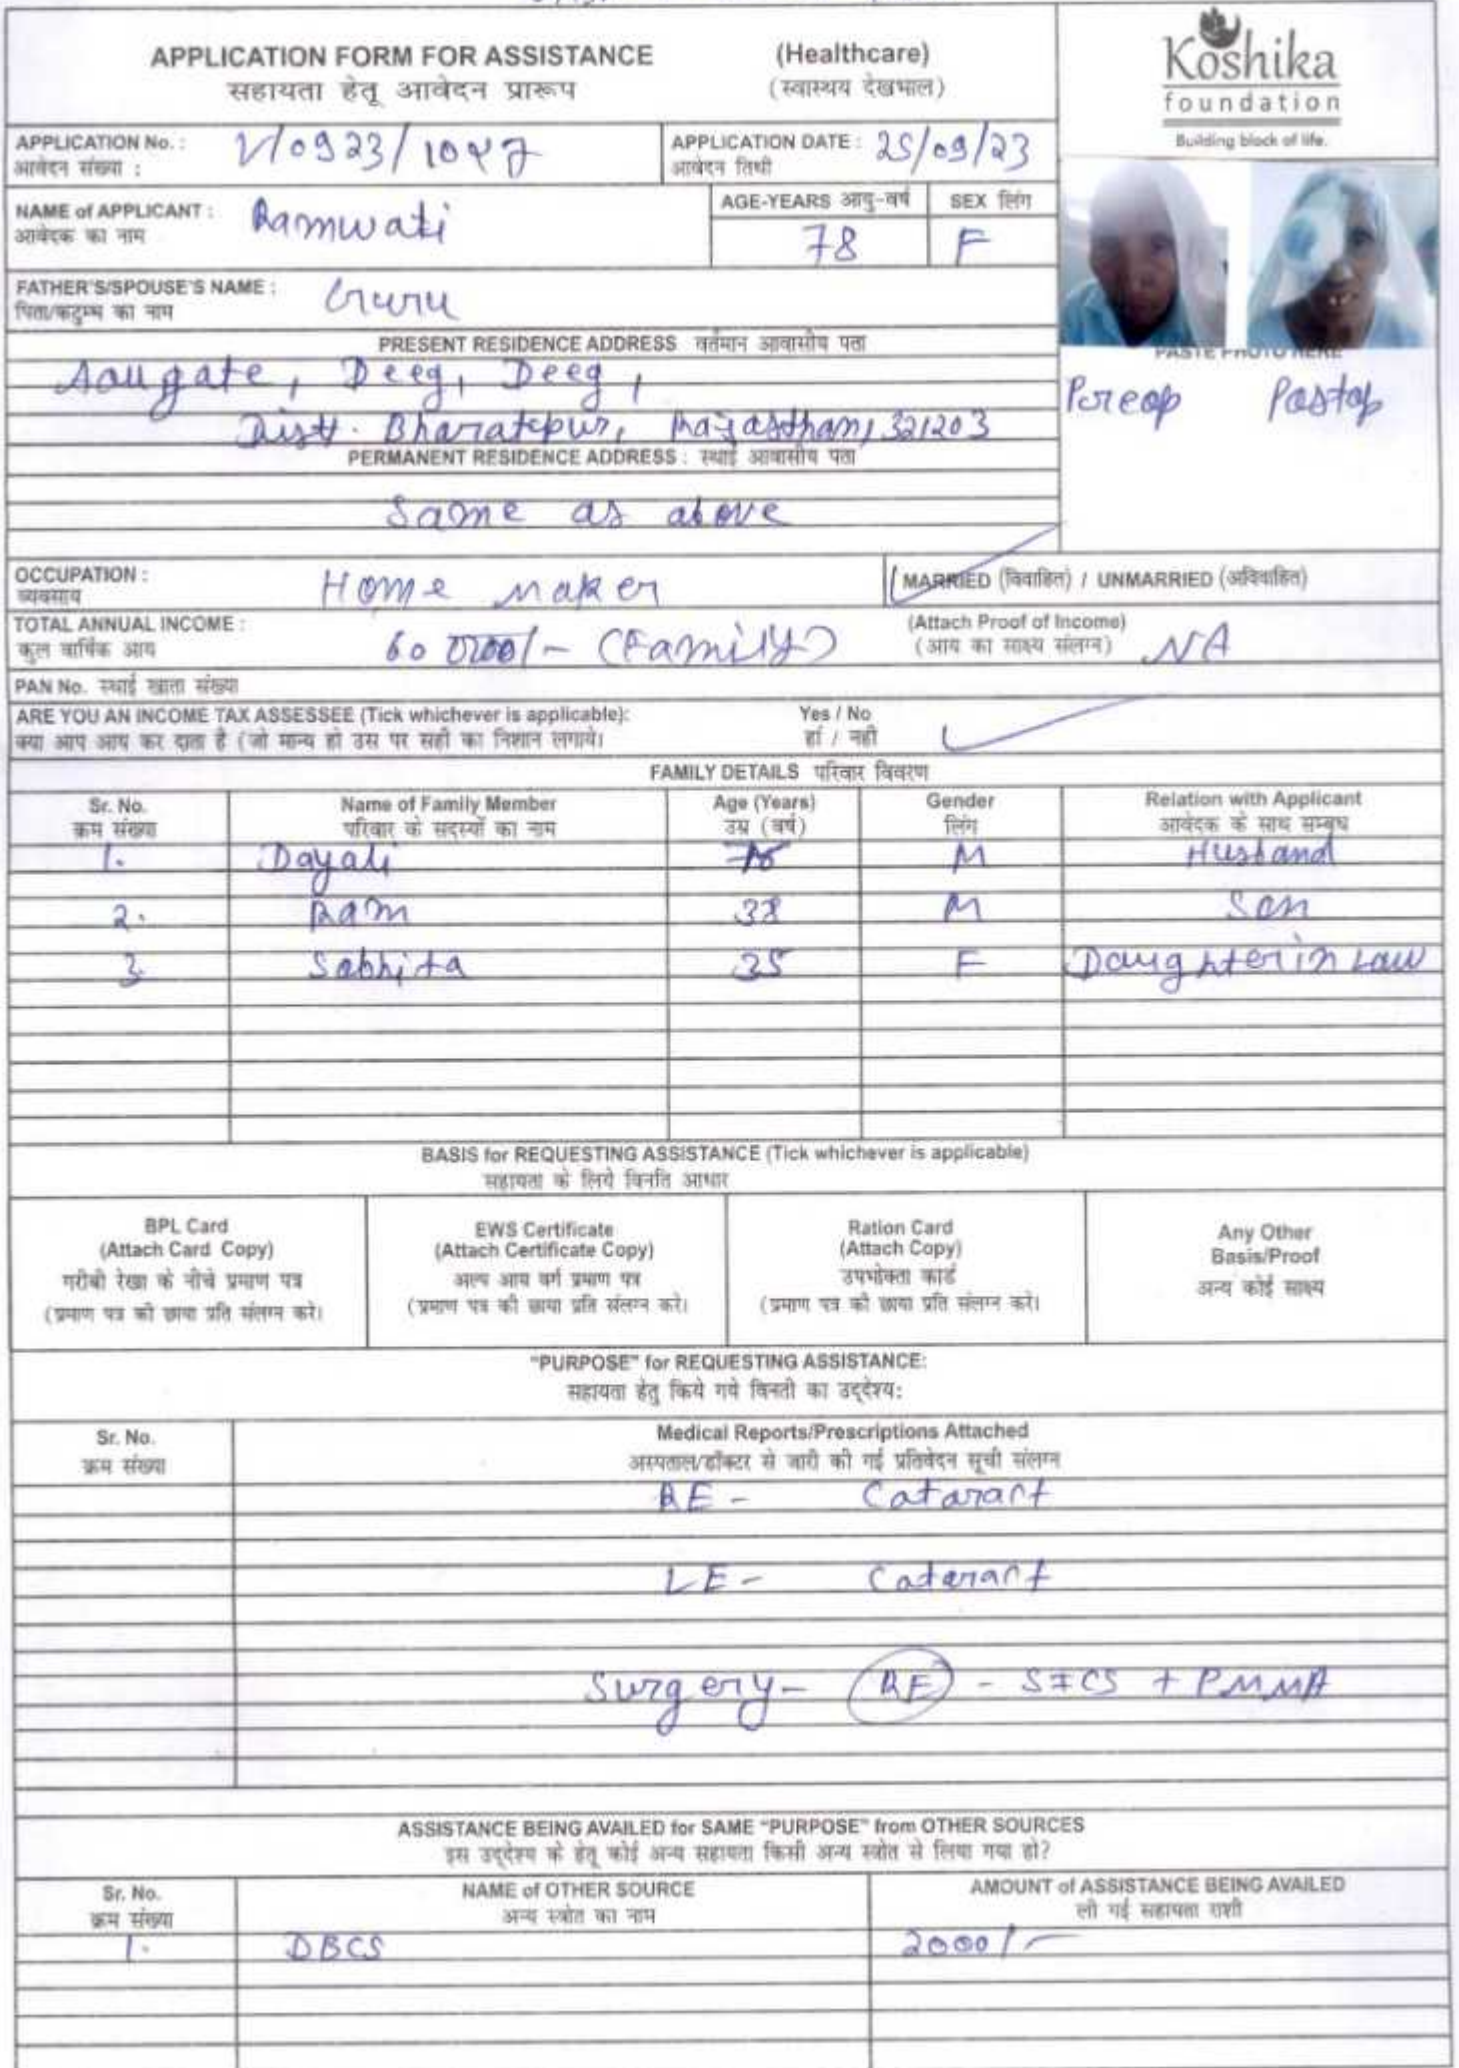 APPLICATION FORM FOR ASSISTANCE (Healthcare)
सहायता हेतू आवेदन प्रारूप (स्वास्थय देखभाल)
Koshika
foundation
Building block of life.
APPLICATION No. : V/0923/1047
आवेदन संख्या :
APPLICATION DATE : 25/09/23
आवेदन तिथी
NAME of APPLICANT : Ramwati
आवेदक का नाम
AGE-YEARS आयु-वर्ष SEX लिंग
78 F
FATHER'S/SPOUSE'S NAME : Guru
पिता/कटुम्ब का नाम
PRESENT RESIDENCE ADDRESS वर्तमान आवासीय पता
PASTE PHOTO HERE
Preop Postop
Deeg, Deeg,
Distt. Bharatpur, Rajasthan, 321203
PERMANENT RESIDENCE ADDRESS : स्थाई आवासीय पता
Same as above
OCCUPATION : Home Maker
व्यवसाय
MARRIED (विवाहित) / UNMARRIED (अविवाहित)
TOTAL ANNUAL INCOME : 60 000/- (Family)
कुल वार्षिक आय
(Attach Proof of Income) NA
(आय का साक्ष्य संलग्न)
PAN No. स्थाई खाता संख्या
ARE YOU AN INCOME TAX ASSESSEE (Tick whichever is applicable): Yes / No
क्या आप आय कर दाता है (जो मान्य हो उस पर सही का निशान लगाये। हां / नही
FAMILY DETAILS परिवार विवरण
Sr. No. Name of Family Member Age (Years) Gender Relation with Applicant
क्रम संख्या परिवार के सदस्यों का नाम उम्र (वर्ष) लिंग आवेदक के साथ सम्बध
1. Dayali M Husband
2. Ram 38 M Son
3. Sabhita 35 F Daughter in Law
BASIS for REQUESTING ASSISTANCE (Tick whichever is applicable)
सहायता के लिये विनति आधार
BPL Card
(Attach Card Copy)
गरीबी रेखा के नीचे प्रमाण पत्र
(प्रमाण पत्र की छाया प्रति संलग्न करे।
EWS Certificate
(Attach Certificate Copy)
अल्प आय वर्ग प्रमाण पत्र
(प्रमाण पत्र की छाया प्रति संलग्न करे।
Ration Card
(Attach Copy)
उपभोक्ता कार्ड
(प्रमाण पत्र की छाया प्रति संलग्न करे।
Any Other
Basis/Proof
अन्य कोई साक्ष्य
"PURPOSE" for REQUESTING ASSISTANCE:
सहायता हेतु किये गये विनती का उद्देश्य:
Sr. No. Medical Reports/Prescriptions Attached
क्रम संख्या अस्पताल/डॉक्टर से जारी की गई प्रतिवेदन सूची संलग्न
RE - Cataract
LE - Cataract
Surgery - RE - SICS + PMMA
ASSISTANCE BEING AVAILED for SAME "PURPOSE" from OTHER SOURCES
इस उद्देश्य के हेतू कोई अन्य सहायता किसी अन्य स्त्रोत से लिया गया हो?
Sr. No. NAME of OTHER SOURCE AMOUNT of ASSISTANCE BEING AVAILED
क्रम संख्या अन्य स्त्रोत का नाम ली गई सहायता राशी
1. DBCS 2000/-